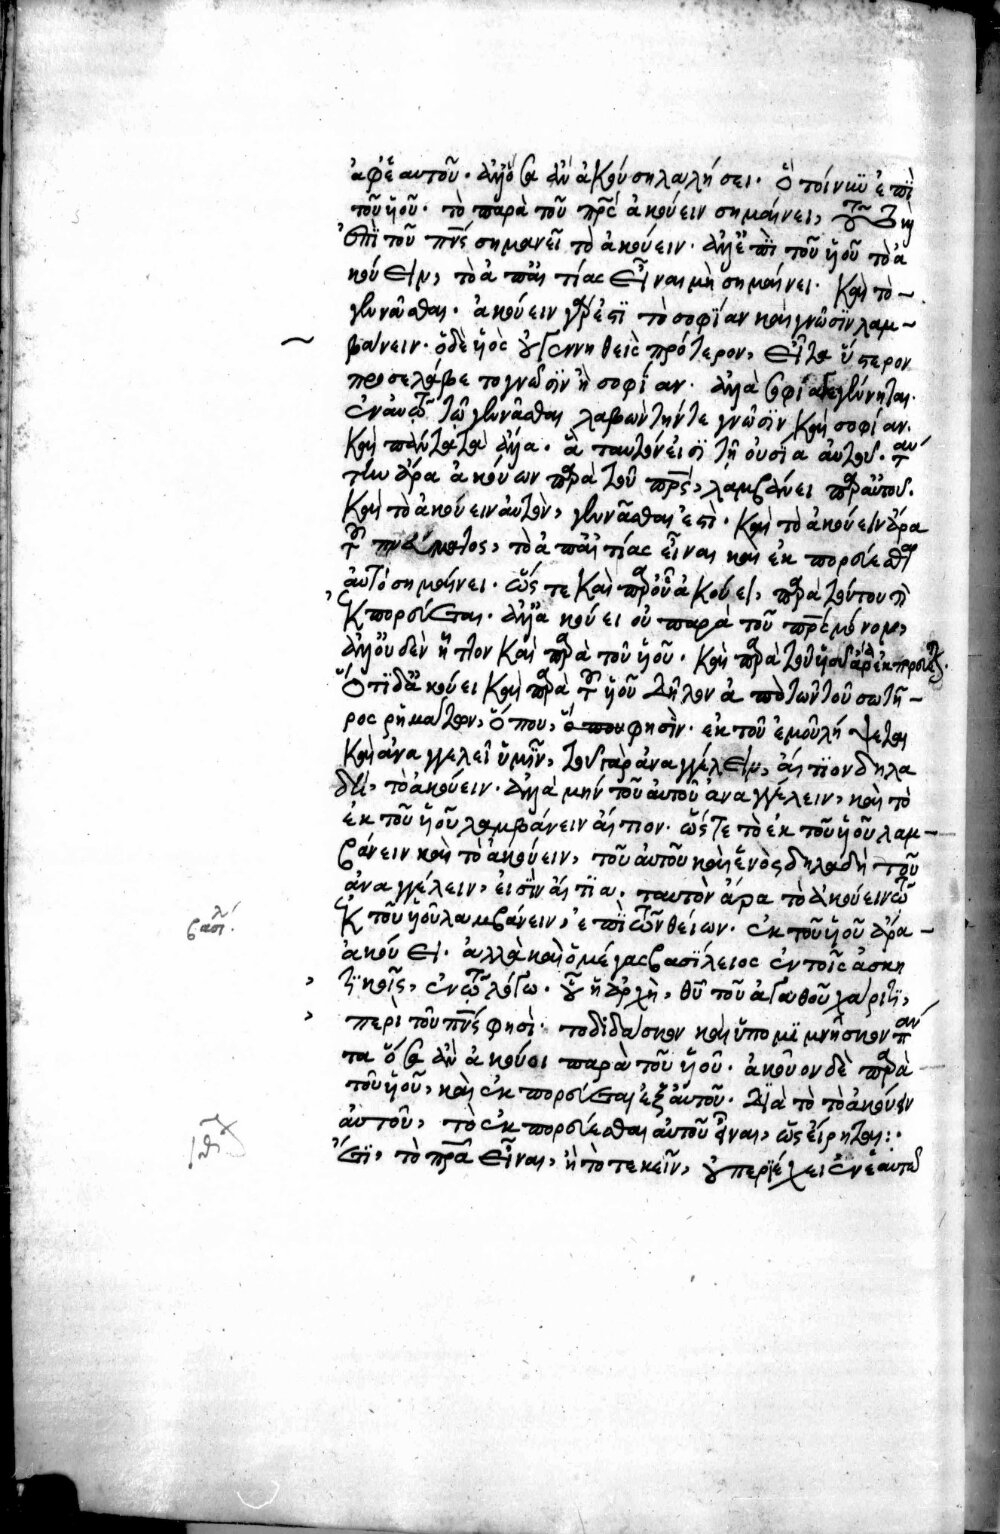 ἀφ' ἑαυτοῦ. ἀλλ' ὅσα ἂν ἀκούση λαλήσει. ὃ τοίνυν ἐπὶ
τοῦ υἱοῦ. τὸ παρὰ τοῦ πρς ἀκούειν σημαίνει, τοῦτο
ἐπὶ τοῦ πνς σημανεῖ τὸ ἀκούειν. ἀλλ' ἐπὶ τοῦ υἱοῦ τὸ ἀ
κούειν, τὸ ἀπ' αἰτίας εἶναι μὴ σημαίνει. καὶ τὸ
γεννᾶσθαι. ἀκούειν γάρ ἐστι τὸ σοφίαν καὶ γνῶσιν λαμ-
βάνειν. ὁ δὲ υἱὸς οὐ γεννηθεὶς πρότερον, εἶτα ὕστερον
προσελάβε το γνῶσιν ἢ σοφίαν. ἀλλὰ σοφία γεγέννηται.
ἐν αὐτῶ τῶ γεννᾶσθαι λαβὼν τήν τε γνῶσιν καὶ σοφίαν.
καὶ πάντα τὰ ἄλλα. ἃ ταυτόν εἰσι τῆ οὐσία αὐτοῦ.
ἄρα ἀκούων παρὰ τοῦ πρς, λαμβάνει παρ' αὐτοῦ.
καὶ τὸ ἀκούειν αὐτὸν, γεννᾶσθαι ἐστὶ. καὶ τὸ ἀκούειν ἄρα
τοῦ πνεύματος, τὸ ἀπ' αἰτίας εἶναι καὶ ἐκπορεύεσθαι
αὐτὸ σημαίνει. ὥστε καὶ παρ' οὗ ἀκούει, παρὰ τούτου
ἐκπορεύεται. ἀλλ' ἀκούει οὐ παρὰ τοῦ πρς μόνον,
ἀλλ' οὐδὲν ἧττον καὶ παρὰ τοῦ υἱοῦ. καὶ παρὰ τοῦ υἱοῦ ἄρα ἐκπορεύεται.
ὅτι δὲ ἀκούει καὶ παρὰ τοῦ υἱοῦ δῆλον ἀπὸ τῶν τοῦ σωτῆ-
ρος ρημάτων, ὅπου, φησὶν. ἐκ τοῦ ἐμοῦ λήψεται
καὶ ἀναγγελεῖ ὑμῖν, τοῦ γὰρ ἀναγγέλειν, αἴτιον δηλα
δὴ, τὸ ἀκούειν. ἀλλὰ μὴν τοῦ αὐτοῦ ἀναγγέλειν, καὶ τὸ
ἐκ τοῦ υἱοῦ λαμβάνειν αἴτιον. ὥστε τὸ ἐκ τοῦ υἱοῦ λαμ-
βάνειν καὶ τὸ ἀκούειν, τοῦ αὐτοῦ καὶ ἑνὸς δηλαδὴ τοῦ
ἀναγγέλειν, εἰσὶν αἴτια. ταυτὸν ἄρα τὸ ἀκούειν τῶ
ἐκ τοῦ υἱοῦ λαμβάνειν, ἐπὶ τῶν θείων. ἐκ τοῦ υἱοῦ ἄρα-
ἀκούει. ἀλλὰ καὶ ὁ μέγας βασίλειος ἐν τοῖς ἀσκη
τικοῖς, ἐν τῶ λόγω. οὗ ἡ ἀρχὴ, θῦ τοῦ ἀγαθοῦ χάριτι,
περὶ τοῦ πνς φησὶ. το διδάσκον καὶ ὑπομιμνῆσκον πάν
τα ὅσα ἂν ἀκούοι παρὰ τοῦ υἱοῦ. ἀκοῦον δὲ παρὰ
τοῦ υἱοῦ, καὶ ἐκπορεύεται ἐξ αὐτοῦ. διὰ τὸ τὸ ἀκούειν
αὐτοῦ, τὸ ἐκπορεύεσθαι αὐτοῦ εἶναι, ὡς εἴρηται:.
ἔτι, τὸ πρα εἶναι, ἢ τὸ τεκεῖν, οὐ περιέχει ἐν ἑαυτῶ
βασιλ.